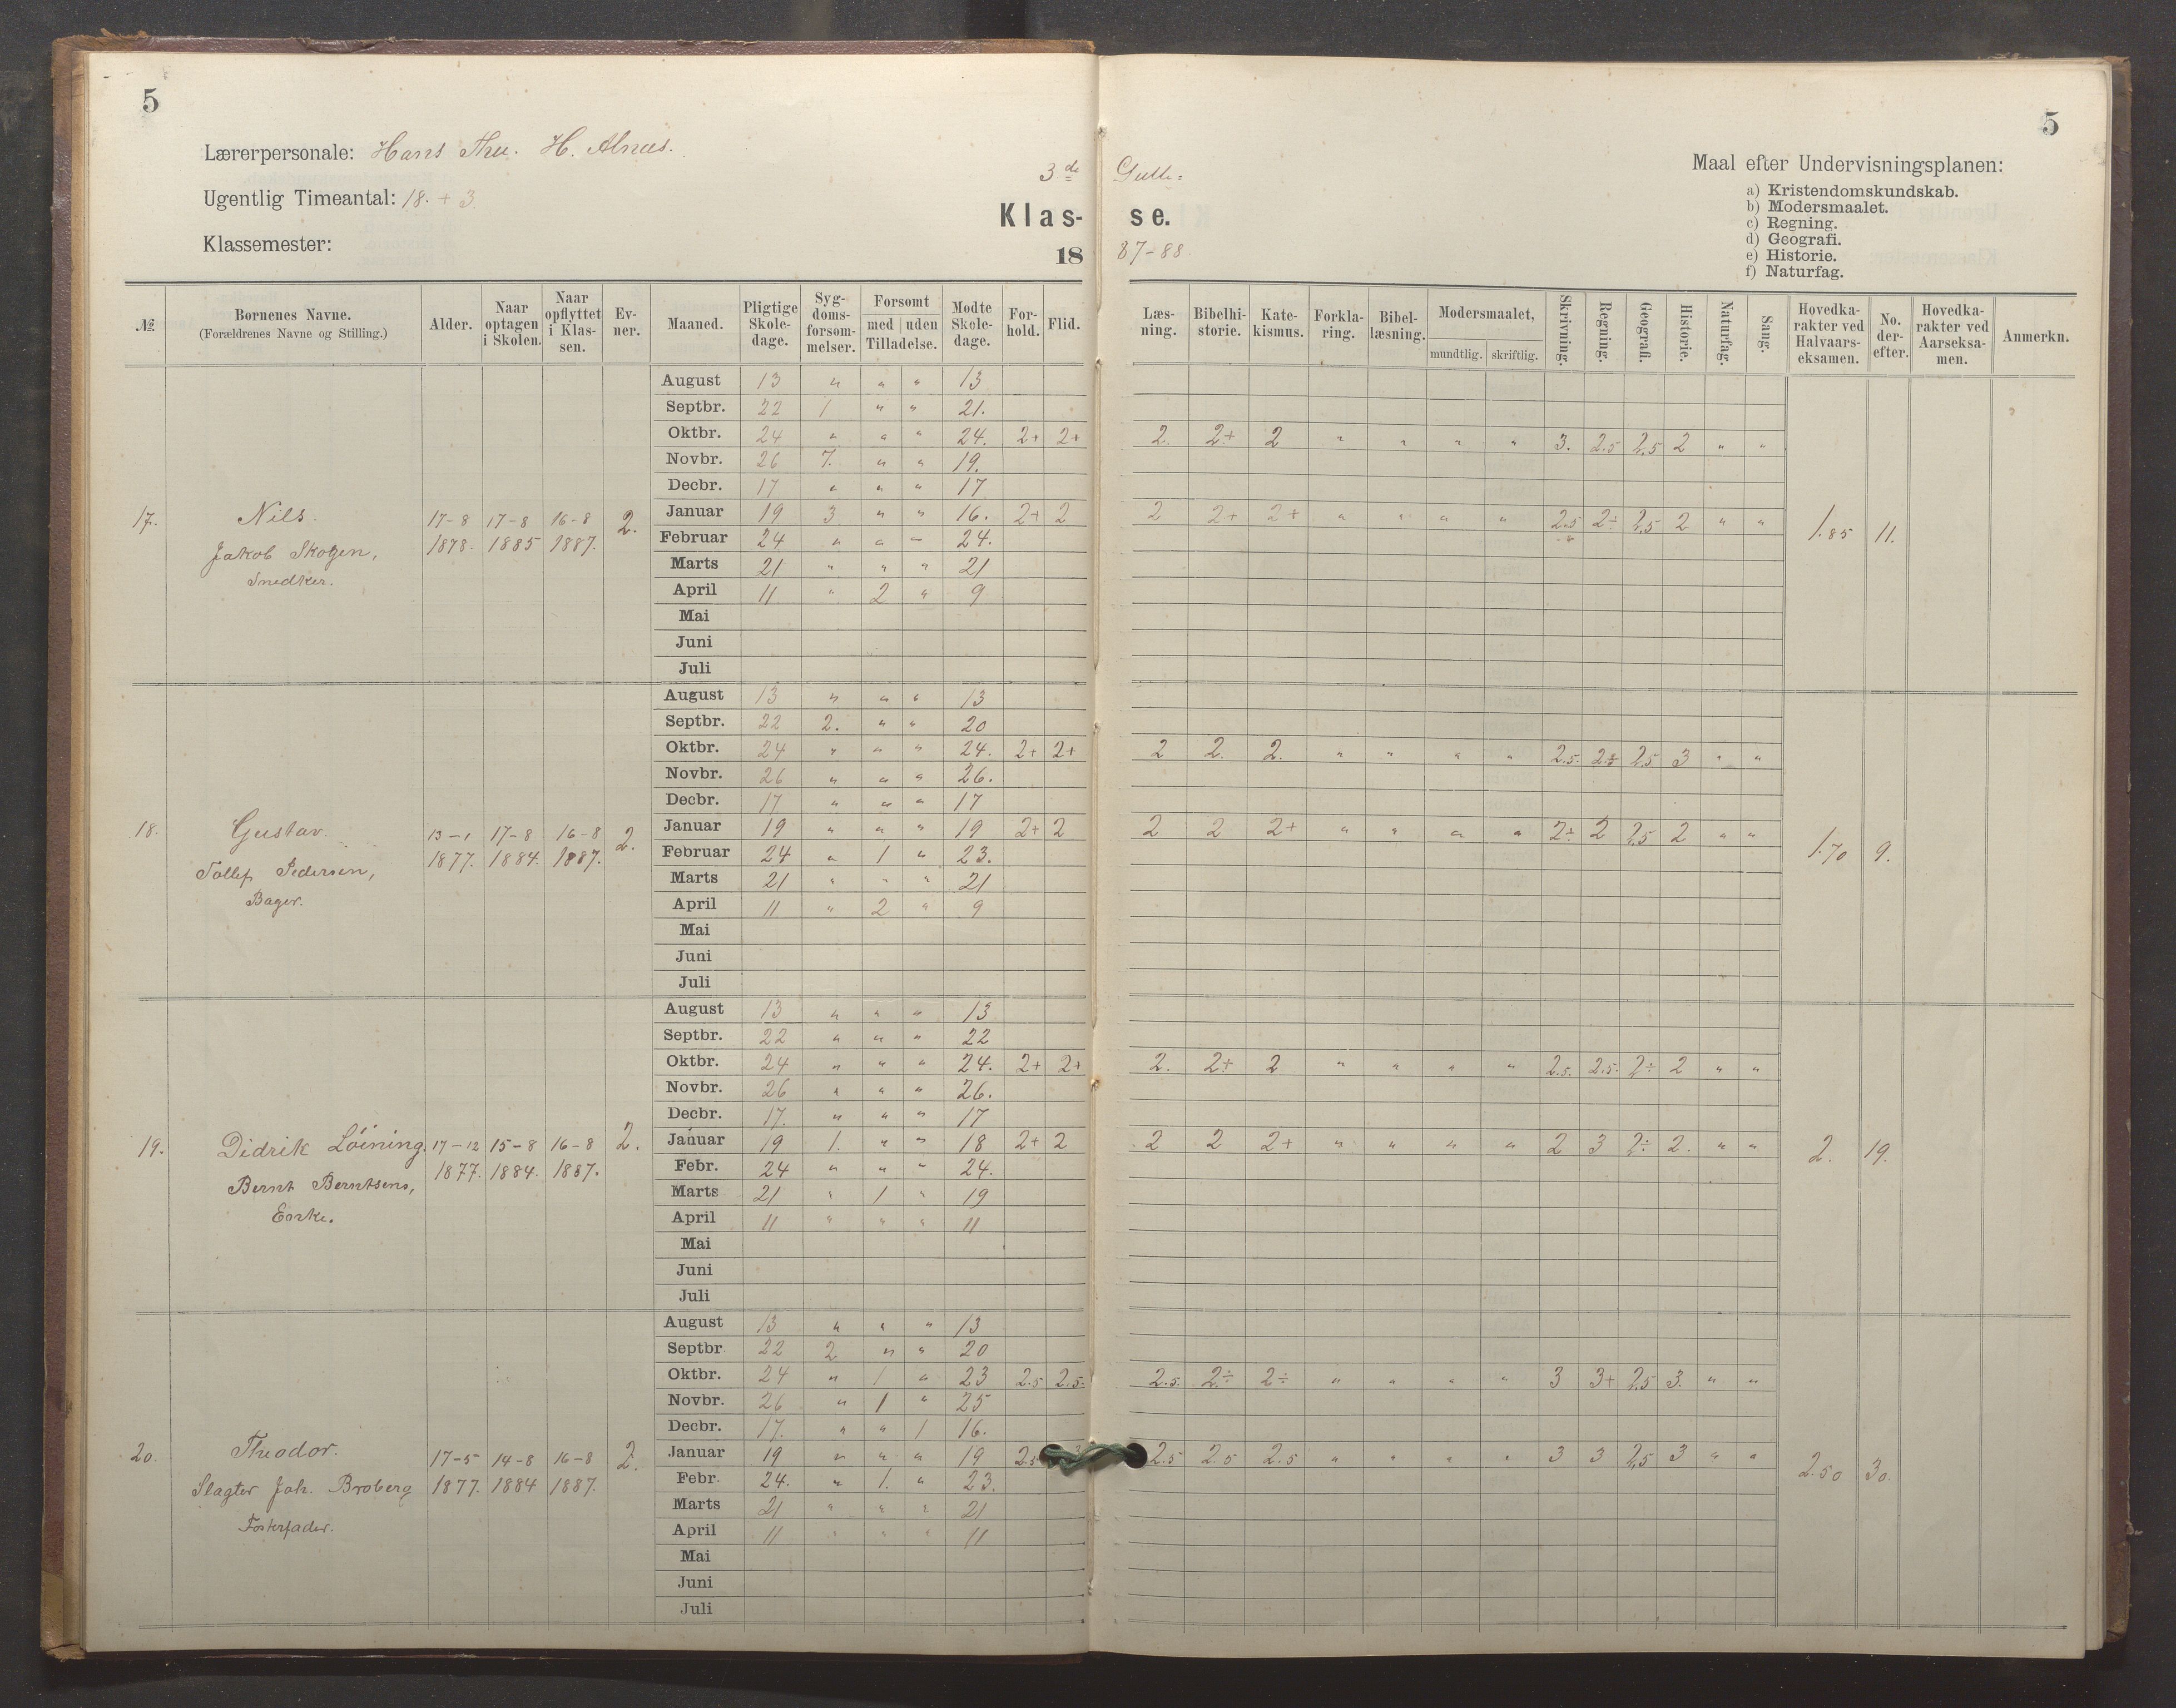 5
5
Lærerpersonale: Hans Thu. H. Alnæs.
Ugentlig Timeantal: 18. + 3.
Klassemester:
3de Gutte=
Klas- se.
18 87-88
Maal efter Undervisningsplanen:
a) Kristendomskundskab.
b) Modersmaalet.
c) Regning.
d) Geografi.
e) Historie.
f) Naturfag.
№ Bornenes Navne. (Forældrenes Navne og Stilling.) Alder. Naar optagen i Skolen. Naar opflyttet i Klassen. Ev-ner. Maaned. Pligtige Skole-dage. Syg-doms-forsom-melser. Forsomt med uden Tilladelse. Modte Skole-dage. For-hold. Flid. Læs-ning. Bibelhi-storie. Kate-kismus. Forkla-ring. Bibel-læsning. Modersmaalet, mundtlig. skriftlig. Skrivning. Regning. Geografi. Historie. Naturfag. Sang. Hovedka-rakter ved Halvaars-eksamen. No. der-efter. Hovedka-rakter ved Aarseksa-men. Anmerkn.
17. Nils. Jakob Skogen, Snedker. 17-8 1878. 17-8 1885 16-8 1887. 2. 1.85 11.
August 13 " " " 13
Septbr. 22 1 " " 21.
Oktbr. 24 " " " 24. 2+ 2+ 2. 2+ 2 " " " " 3. 2.5 2,5 2 " "
Novbr. 26 7. " " 19.
Decbr. 17 " " " 17
Januar 19 3 " " 16. 2+ 2 2 2+ 2+ " " " " 2.5 2÷ 2,5 2 " "
Februar 24 " " " 24.
Marts 21 " " " 21
April 11 " 2 " 9
Mai
Juni
Juli
18. Gustav. Tollef Pedersen, Bager. 13-1 1877. 17-8 1884. 16-8 1887. 2. 1.70 9.
August 13 " " " 13
Septbr. 22 2. " " 20
Oktbr. 24 " " " 24. 2+ 2+ 2 2. 2. " " " " 2.5. 2÷ 2,5 3 " "
Novbr. 26 " " " 26.
Decbr. 17 " " " 17
Januar 19 " " " 19 2+ 2 2 2 2+ " " " " 2÷ 2 2,5 2 " "
Februar 24 " 1 " 23.
Marts 21 " " " 21
April 11 " 2 " 9
Mai
Juni
Juli
19. Didrik Löining. Bernt Berntsens, Enke. 17-12 1877. 15-8 1884. 16-8 1887. 2. 2. 19.
August 13 " " " 13
Septbr. 22 " " " 22
Oktbr. 24 " " " 24. 2+ 2+ 2. 2+ 2 " " " " 2.5. 2.5. 2÷ 2 " "
Novbr. 26 " " " 26.
Decbr. 17. " " " 17
Januar 19 1. " " 18 2+ 2 2 2 2+ " " " " 2 3 2÷ 2. " "
Febr. 24 " " " 24.
Marts 21 " 1 " 19
April 11 " " " 11
Mai
Juni
Juli
20. Theodor. Slagter Joh. Broberg Fosterfader. 17-5 1877. 14-8 1884 16-8 1887. 2. 2.50 30.
August 13 " " " 13
Septbr 22 2 " " 20
Oktbr. 24 " 1 " 23 2.5 2.5. 2.5. 2÷ 2÷ " " " " 3 3+ 2,5 3. " "
Novbr. 26 " 1 " 25
Decbr. 17. " " 1 16.
Januar 19 " " " 19 2.5 2.5 2.5 2.5 " " " " 3 3 2,5 3 " "
Febr. 24. " 1. " 23.
Marts 21 " " " 21
April 11 " " " 11
Mai
Juni
Juli